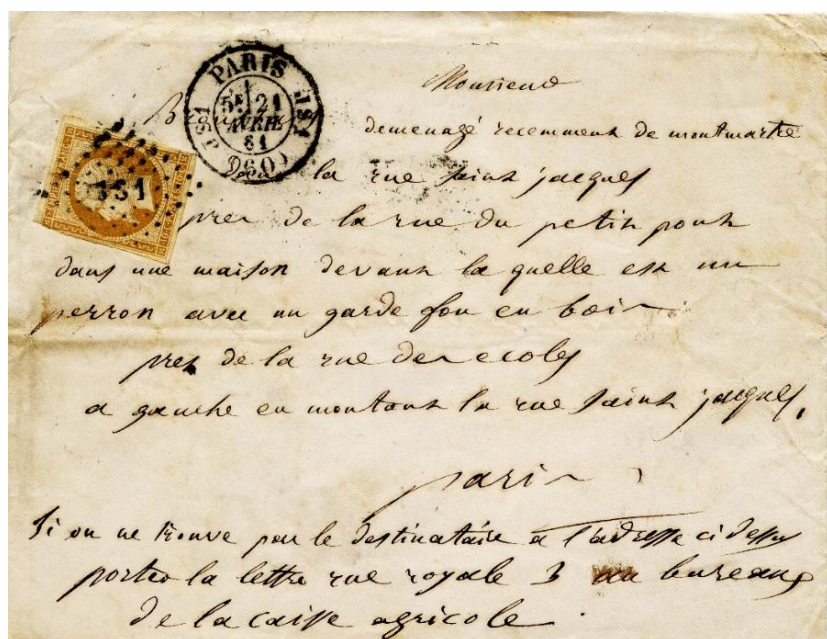 Monsieur
demenagé recemment de montmartre
la rue saint jacques
pres de la rue du petit pont
dans une maison devant la quelle est un
perron avec un garde fou en bois
pres de la rue des ecoles
a gauche en montant la rue saint jacques,
paris
Si on ne trouve pas le destinataire a l'adresse ci dessus
porter la lettre rue royale 3 au bureau
de la caisse agricole.
PARIS
21
AVRIL
61
(60)